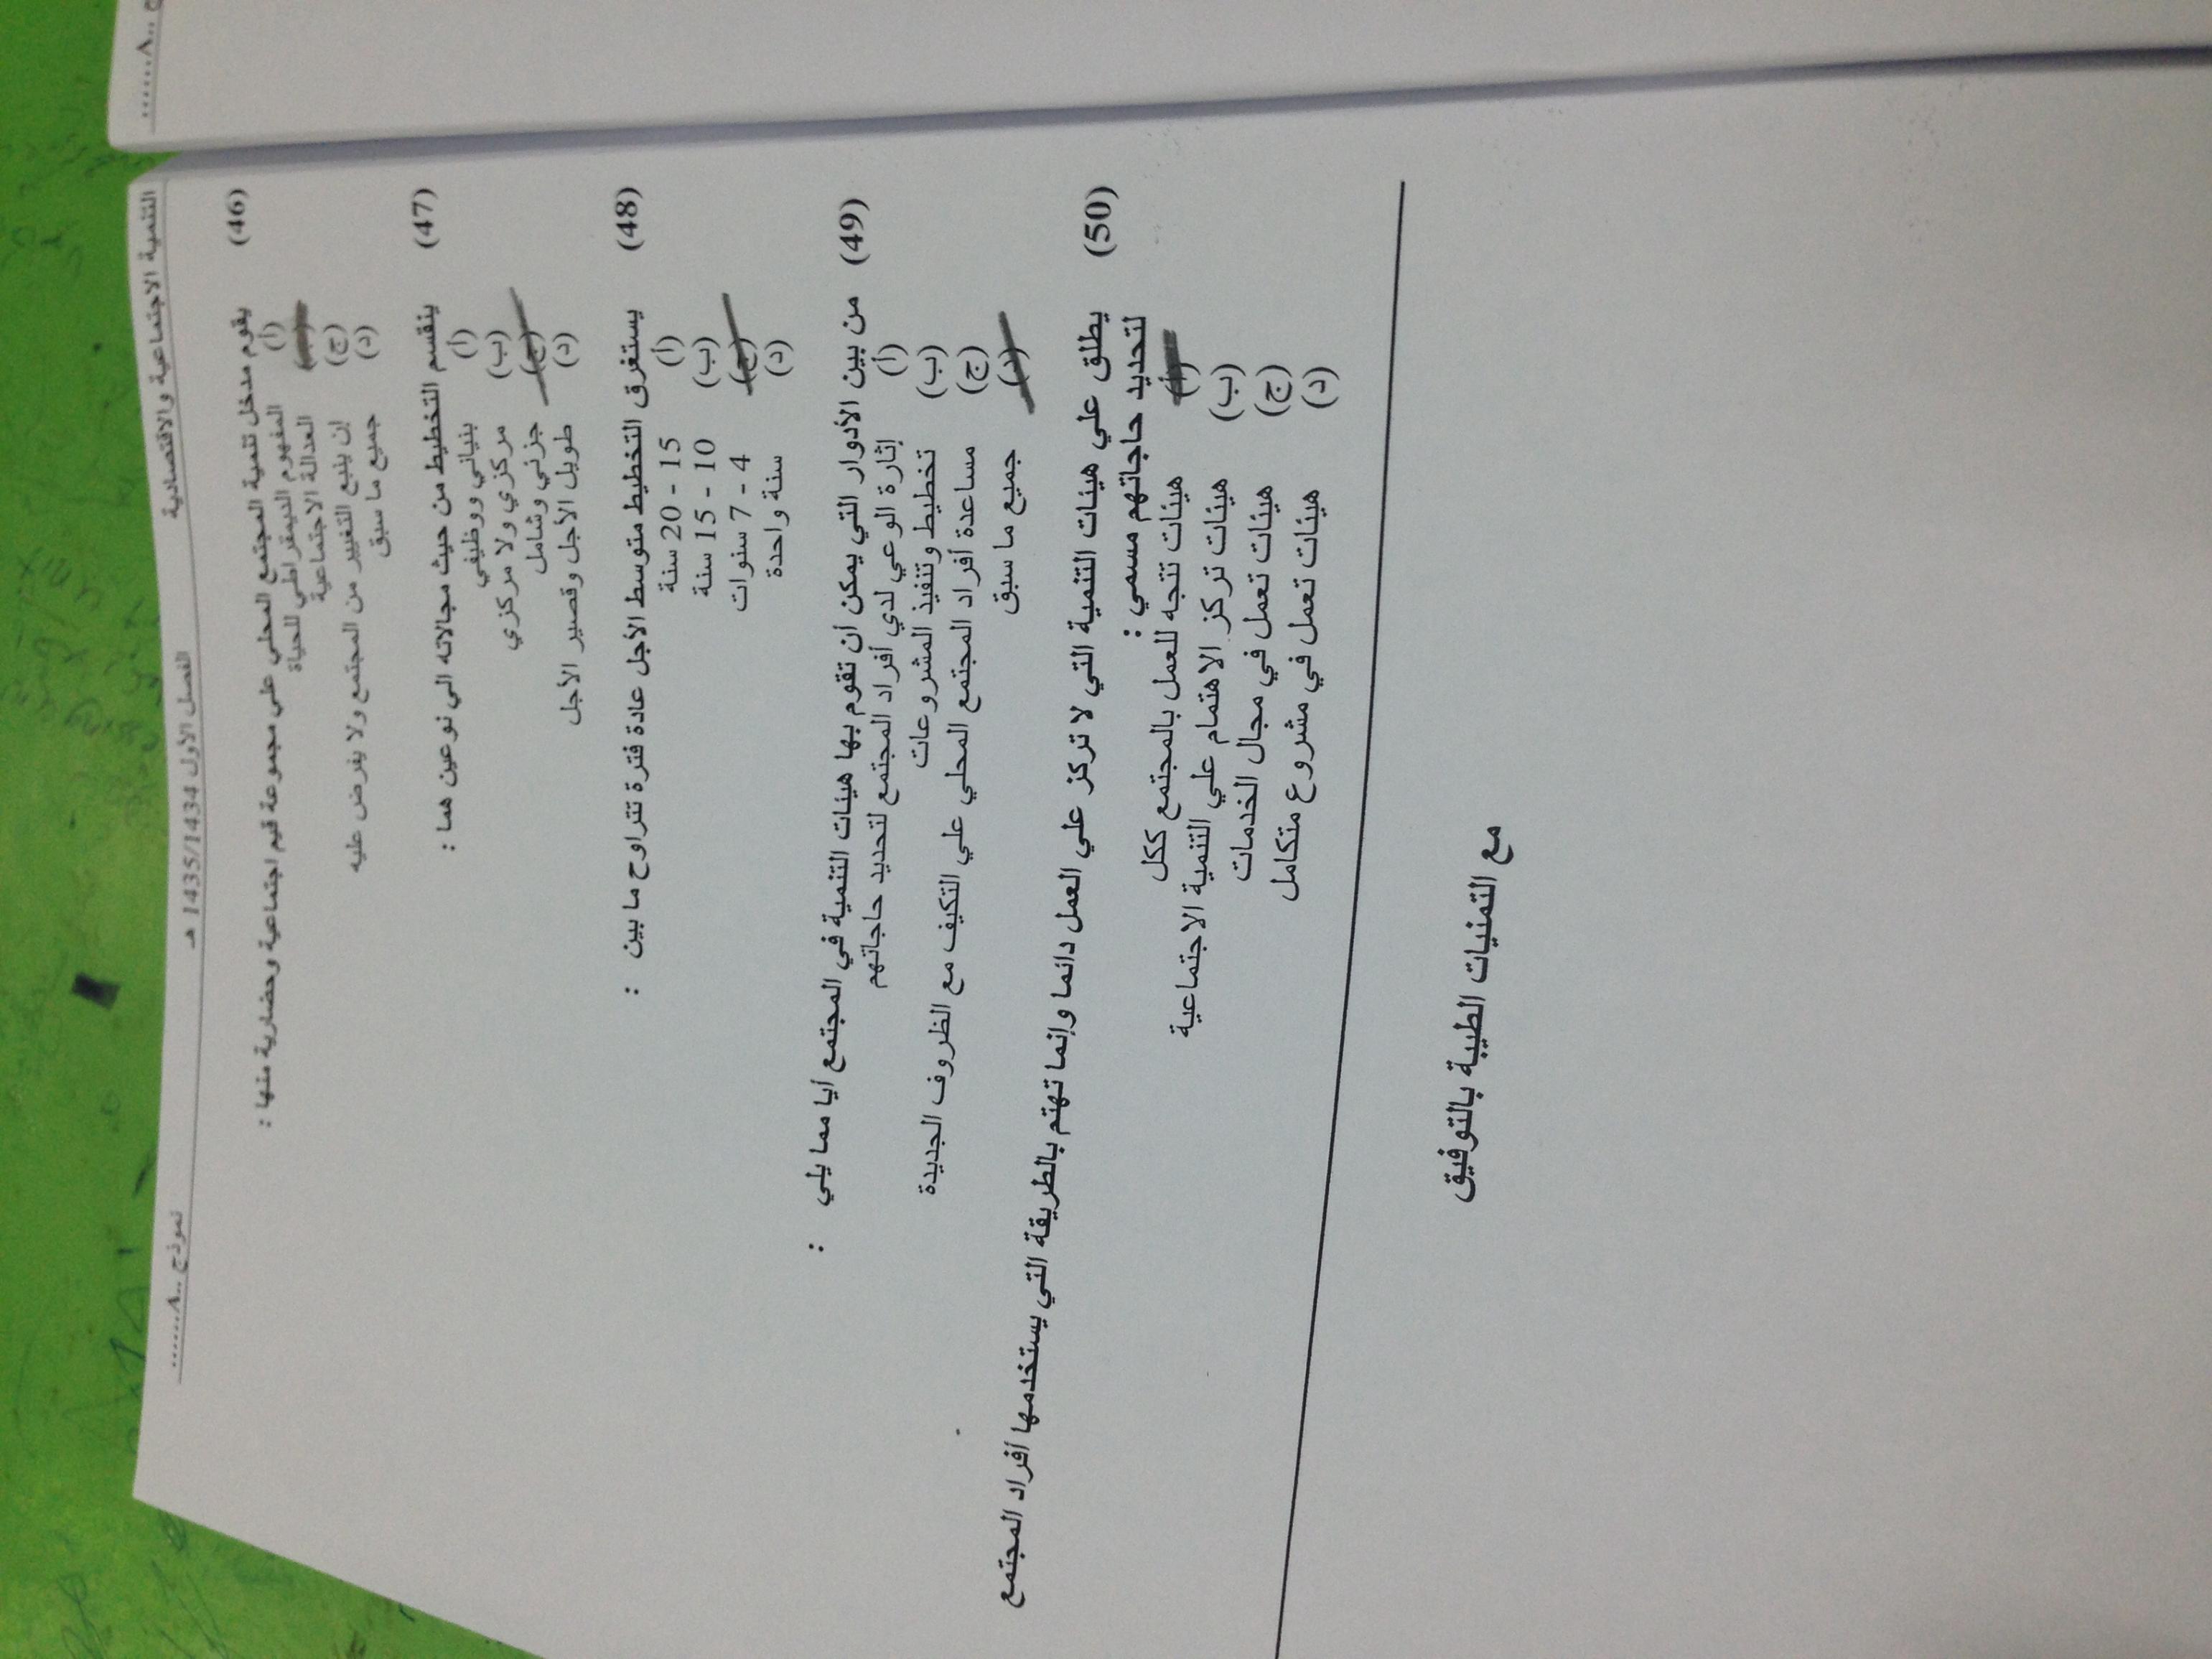 التنمية الاجتماعية والاقتصادية الفصل الأول 1435/1434 هـ نموذج ..٨......
(46) يقوم مدخل تنمية المجتمع المحلي على مجموعة قيم اجتماعية وحضارية منها :
(أ) المفهوم الديمقراطي للحياة
العدالة الاجتماعية
(ج) إن ينبع التغيير من المجتمع ولا يفرض عليه
(د) جميع ما سبق
(47) ينقسم التخطيط من حيث مجالاته الي نوعين هما :
(أ) بنياني ووظيفي
(ب) مركزي ولا مركزي
(ج) جزئي وشامل
(د) طويل الأجل وقصير الأجل
(48) يستغرق التخطيط متوسط الأجل عادة فترة تتراوح ما بين :
(أ) 15 - 20 سنة
(ب) 10 - 15 سنة
(ج) 4 - 7 سنوات
(د) سنة واحدة
(49) من بين الأدوار التي يمكن أن تقوم بها هيئات التنمية في المجتمع أيا مما يلي :
(أ) إثارة الوعي لدي أفراد المجتمع لتحديد حاجاتهم
(ب) تخطيط وتنفيذ المشروعات
(ج) مساعدة أفراد المجتمع المحلي علي التكيف مع الظروف الجديدة
(د) جميع ما سبق
(50) يطلق علي هيئات التنمية التي لا تركز علي العمل دائما وإنما تهتم بالطريقة التي يستخدمها أفراد المجتمع
لتحديد حاجاتهم مسمي :
(أ) هيئات تتجه للعمل بالمجتمع ككل
(ب) هيئات تركز الاهتمام علي التنمية الاجتماعية
(ج) هيئات تعمل في مجال الخدمات
(د) هيئات تعمل في مشروع متكامل
مع التمنيات الطيبة بالتوفيق